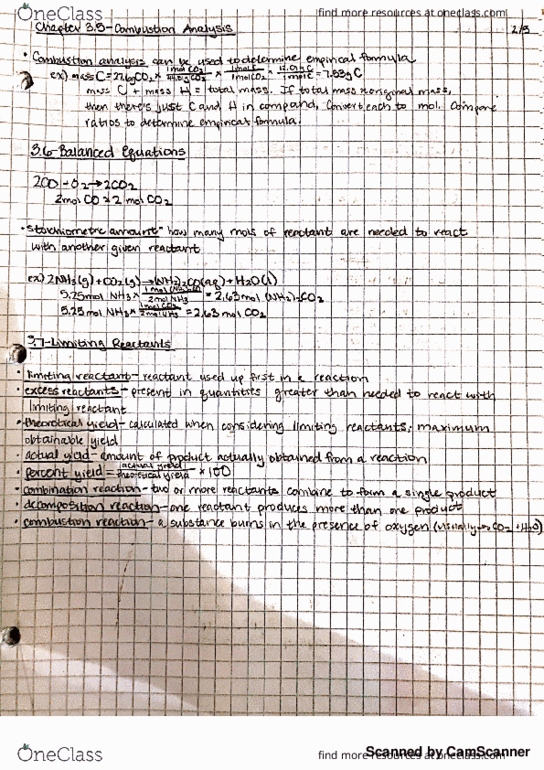 OneClass find more resources at oneclass.com
Chapter 3.5-Combustion Analysis 2/5
• Combustion analysis can be used to determine empirical formula
ex) mass C = CO2 × 1 mol CO2 × 1 mol C × = g C
mass C + mass H = total mass. If total mass = original mass,
then there's just C and H in compound, convert each to mol. Compare
ratios to determine empirical formula.
3.6-Balanced Equations
2CO + O2 → 2CO2
2mol CO = 2 mol CO2
• "Stoichiometric amount" how many mols of reactant are needed to react
with another given reactant
ex) 2NH3(g) + CO2(g) → (NH2)2CO(aq) + H2O(l)
5.25 mol NH3 × 1 mol (NH2)2CO / 2 mol NH3 = 2.63 mol (NH2)2CO2
5.25 mol NH3 × 1 mol CO2 / 2 mol NH3 = 2.63 mol CO2
3.7-Limiting Reactants
• limiting reactant- reactant used up first in a reaction
• excess reactants- present in quantities greater than needed to react with
limiting reactant
• theoretical yield- calculated when considering limiting reactants; maximum
obtainable yield
• actual yield- amount of product actually obtained from a reaction
• percent yield = actual yield / theoretical yield × 100
• combination reaction- two or more reactants combine to form a single product
• decomposition reaction- one reactant produces more than one product
• combustion reaction- a substance burns in the presence of oxygen (usually → CO2 + H2O)
Scanned by CamScanner
OneClass find more resources at oneclass.com